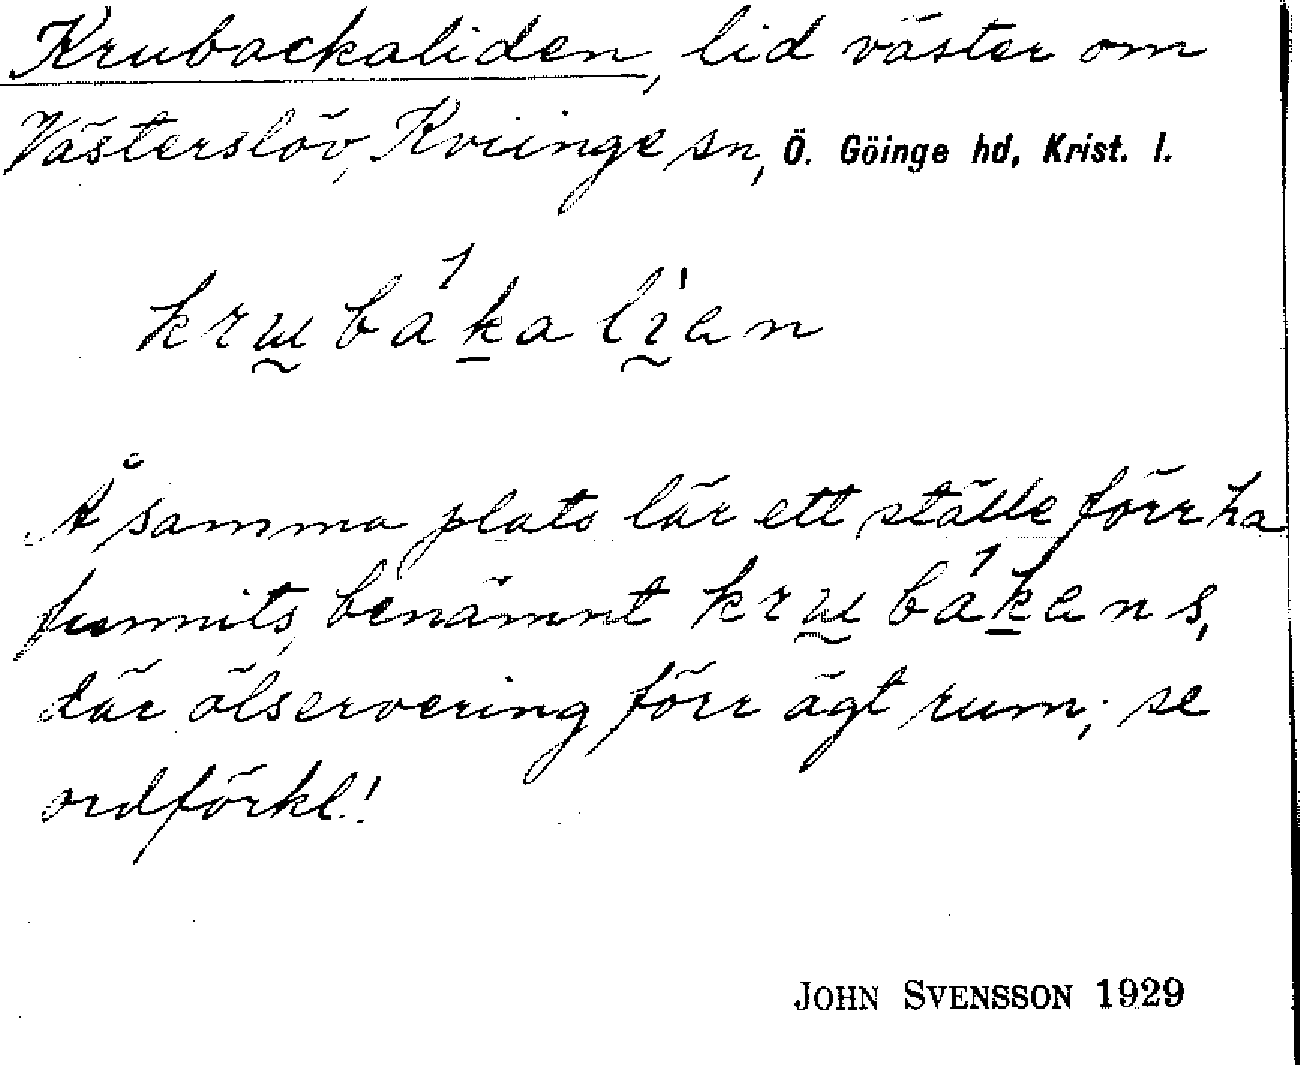 Krubackaliden, lid väster om
Västerslöv, Kviinge sn, Ö. Göinge hd, Krist. l.
krɯ̰bá¹k̠alḭ'en
Å samma plats lär ett ställe förr ha
funnits, benämnt krɯ̰bá¹k̠ens,
där ölservering förr ägt rum; se
ordförkl.!
JOHN SVENSSON 1929